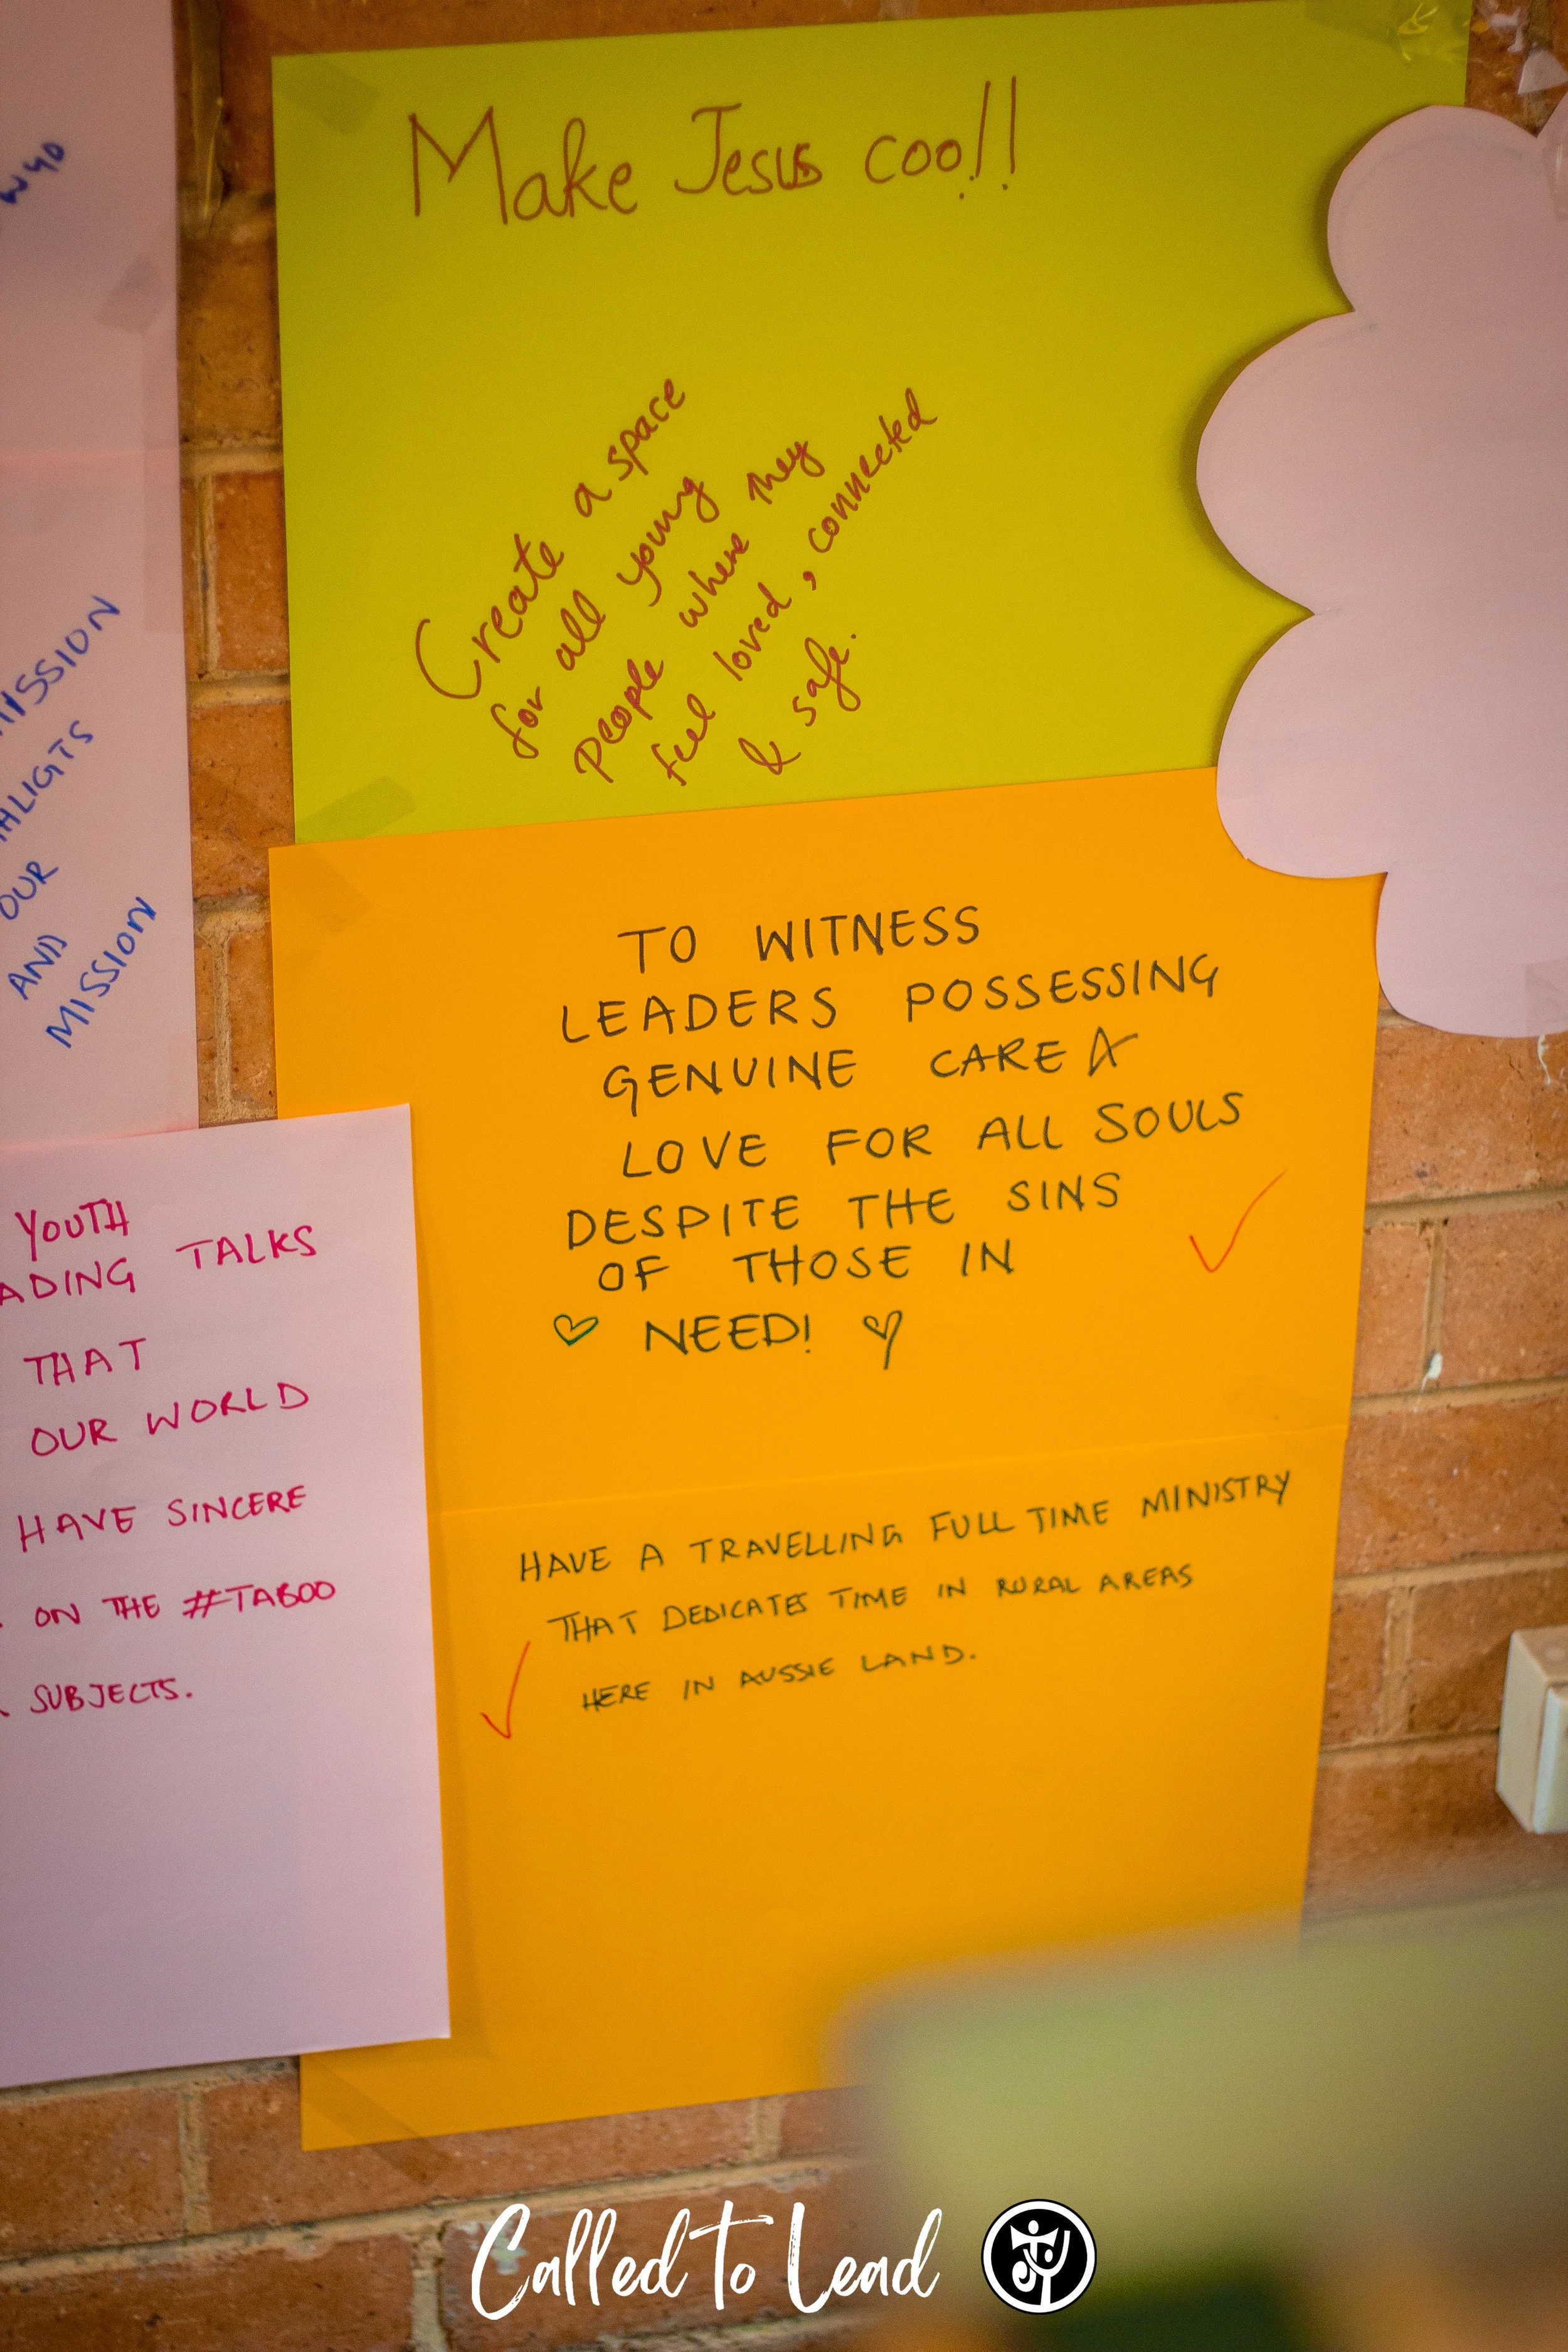 Make Jesus cool!!
Create a space
for all young
people where they
feel loved, connected
& safe.
MISSION
OUR
AND
MISSION
TO WITNESS
LEADERS POSSESSING
GENUINE CARE &
LOVE FOR ALL SOULS
DESPITE THE SINS
OF THOSE IN
♡ NEED! ♡
YOUTH
TALKS
THAT
OUR WORLD
HAVE SINCERE
ON THE #TABOO
SUBJECTS.
HAVE A TRAVELLING FULL TIME MINISTRY
THAT DEDICATES TIME IN RURAL AREAS
HERE IN AUSSIE LAND.
Called To Lead